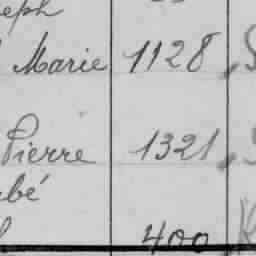 eph
Marie 1128
Pierre 1321
bé
400